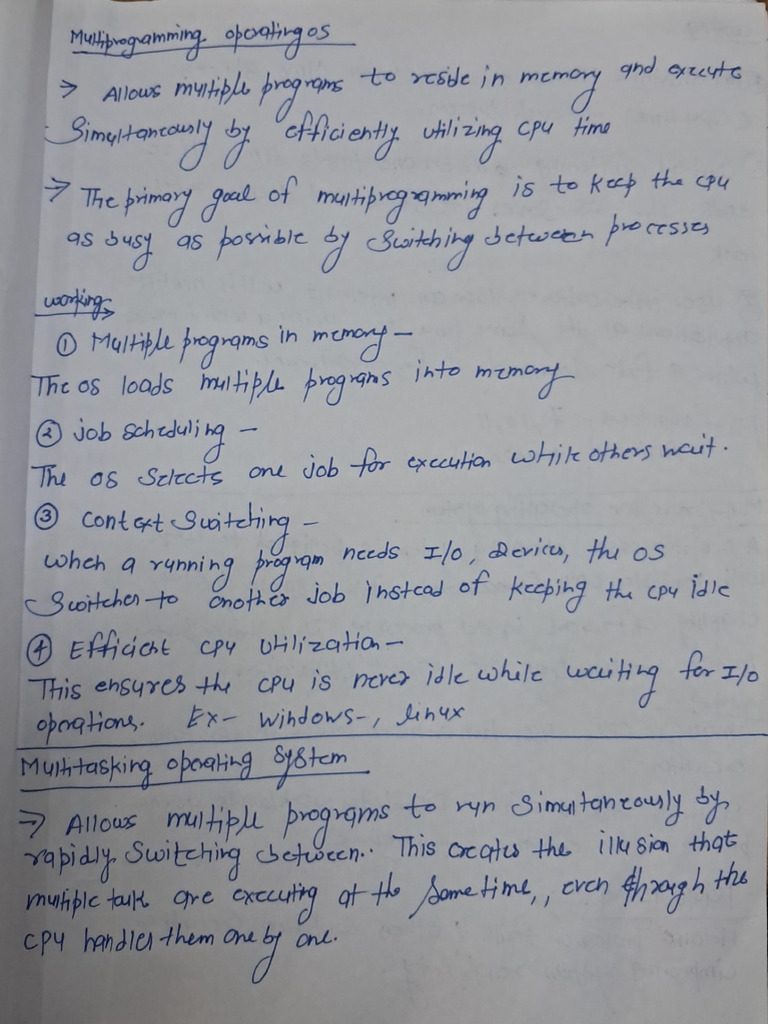 Multiprogramming operating os
→ Allows multiple programs to reside in memory and execute
Simultaneously by efficiently utilizing CPU time
→ The primary goal of multiprogramming is to keep the CPU
as busy as possible by switching between processes
working
① Multiple programs in memory -
The os loads multiple programs into memory
② job scheduling -
The os selects one job for execution while others wait.
③ Context Switching -
when a running program needs I/O, devices, the OS
Switches to another job instead of keeping the cpu idle
④ Efficient CPU Utilization -
This ensures the CPU is never idle while waiting for I/O
operations. Ex- windows-, linux
Multitasking operating System
→ Allows multiple programs to run simultaneously by
rapidly switching between.. This creates the illusion that
multiple task are executing at the same time,, even through the
CPU handles them one by one.